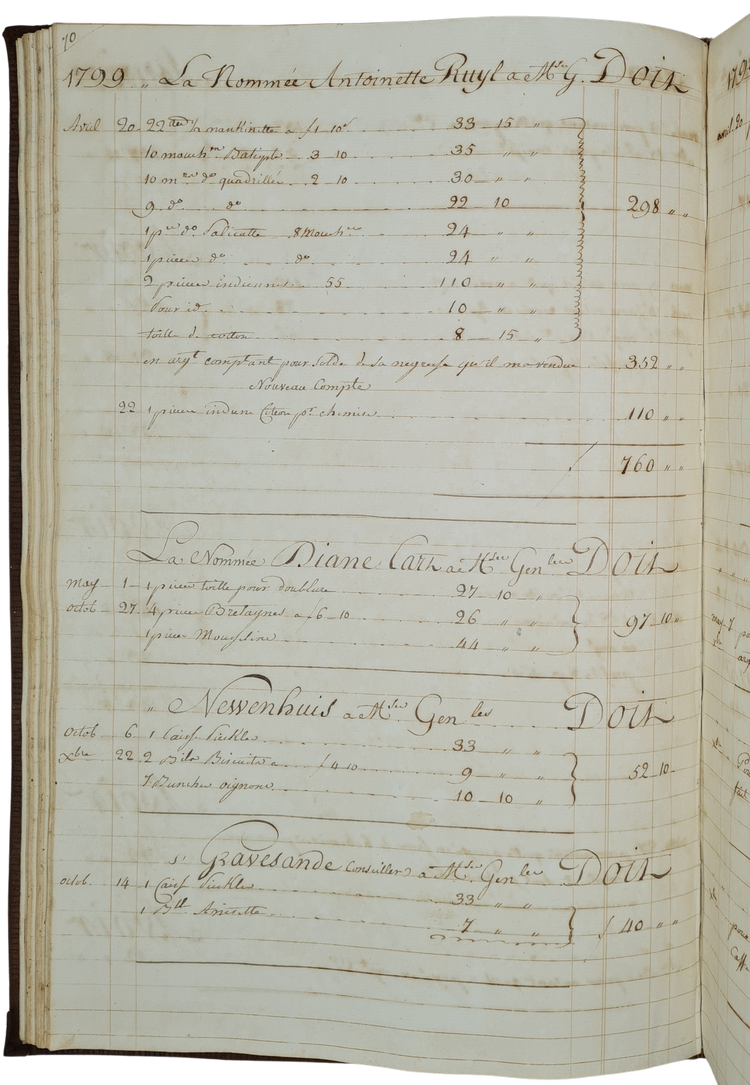 70
1799 „ La Nommée Antoinette Ruyl a Mse G. Doit
Avril 20 22 nankinette a f1 10s 33 15 „
10 mouchrs Batiste 3 10 35 „ „
10 mrs do quadrillés 2 10 30 „ „
9 do do 22 10 298 „ „
1 pce do Salicatte 8 Mouchres 24 „ „
1 piece do do 24 „ „
2 pieces indiennes 55 110 „ „
Pour id. 10 „ „
toille de cotton 8 15 „
en argt comptant pour solde de sa negresse qu'il ma vendue 352 „ „
Nouveau Compte
22 1 piece indienne pr chemise 110 „ „
760 „ „
La Nommée Diane Cark a Mse Genles Doit
may 1 1 piece toille pour doublure 27 10 „
octob 27 4 pieces Bretagnes a f6 10 26 „ „ 97 10 „
1 piece Mousseline 44 „ „
„ Newenhuis a Mse Genles Doit
octob 6 1 Caisse Sickle 33 „ „
Xbre 22 2 Bils Biscuits a f4 10 9 „ „ 52 10
7 Bunches oignons 10 10 „
s' Gravesande Conseiller a Mse Genles Doit
octob. 14 1 Caisse Sickle 33 „ „
1 Bll Anisette 7 „ „ f 40 „ „